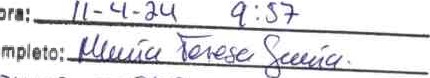 ora: 11-4-24 9:57
mpleto: Maria Teresa